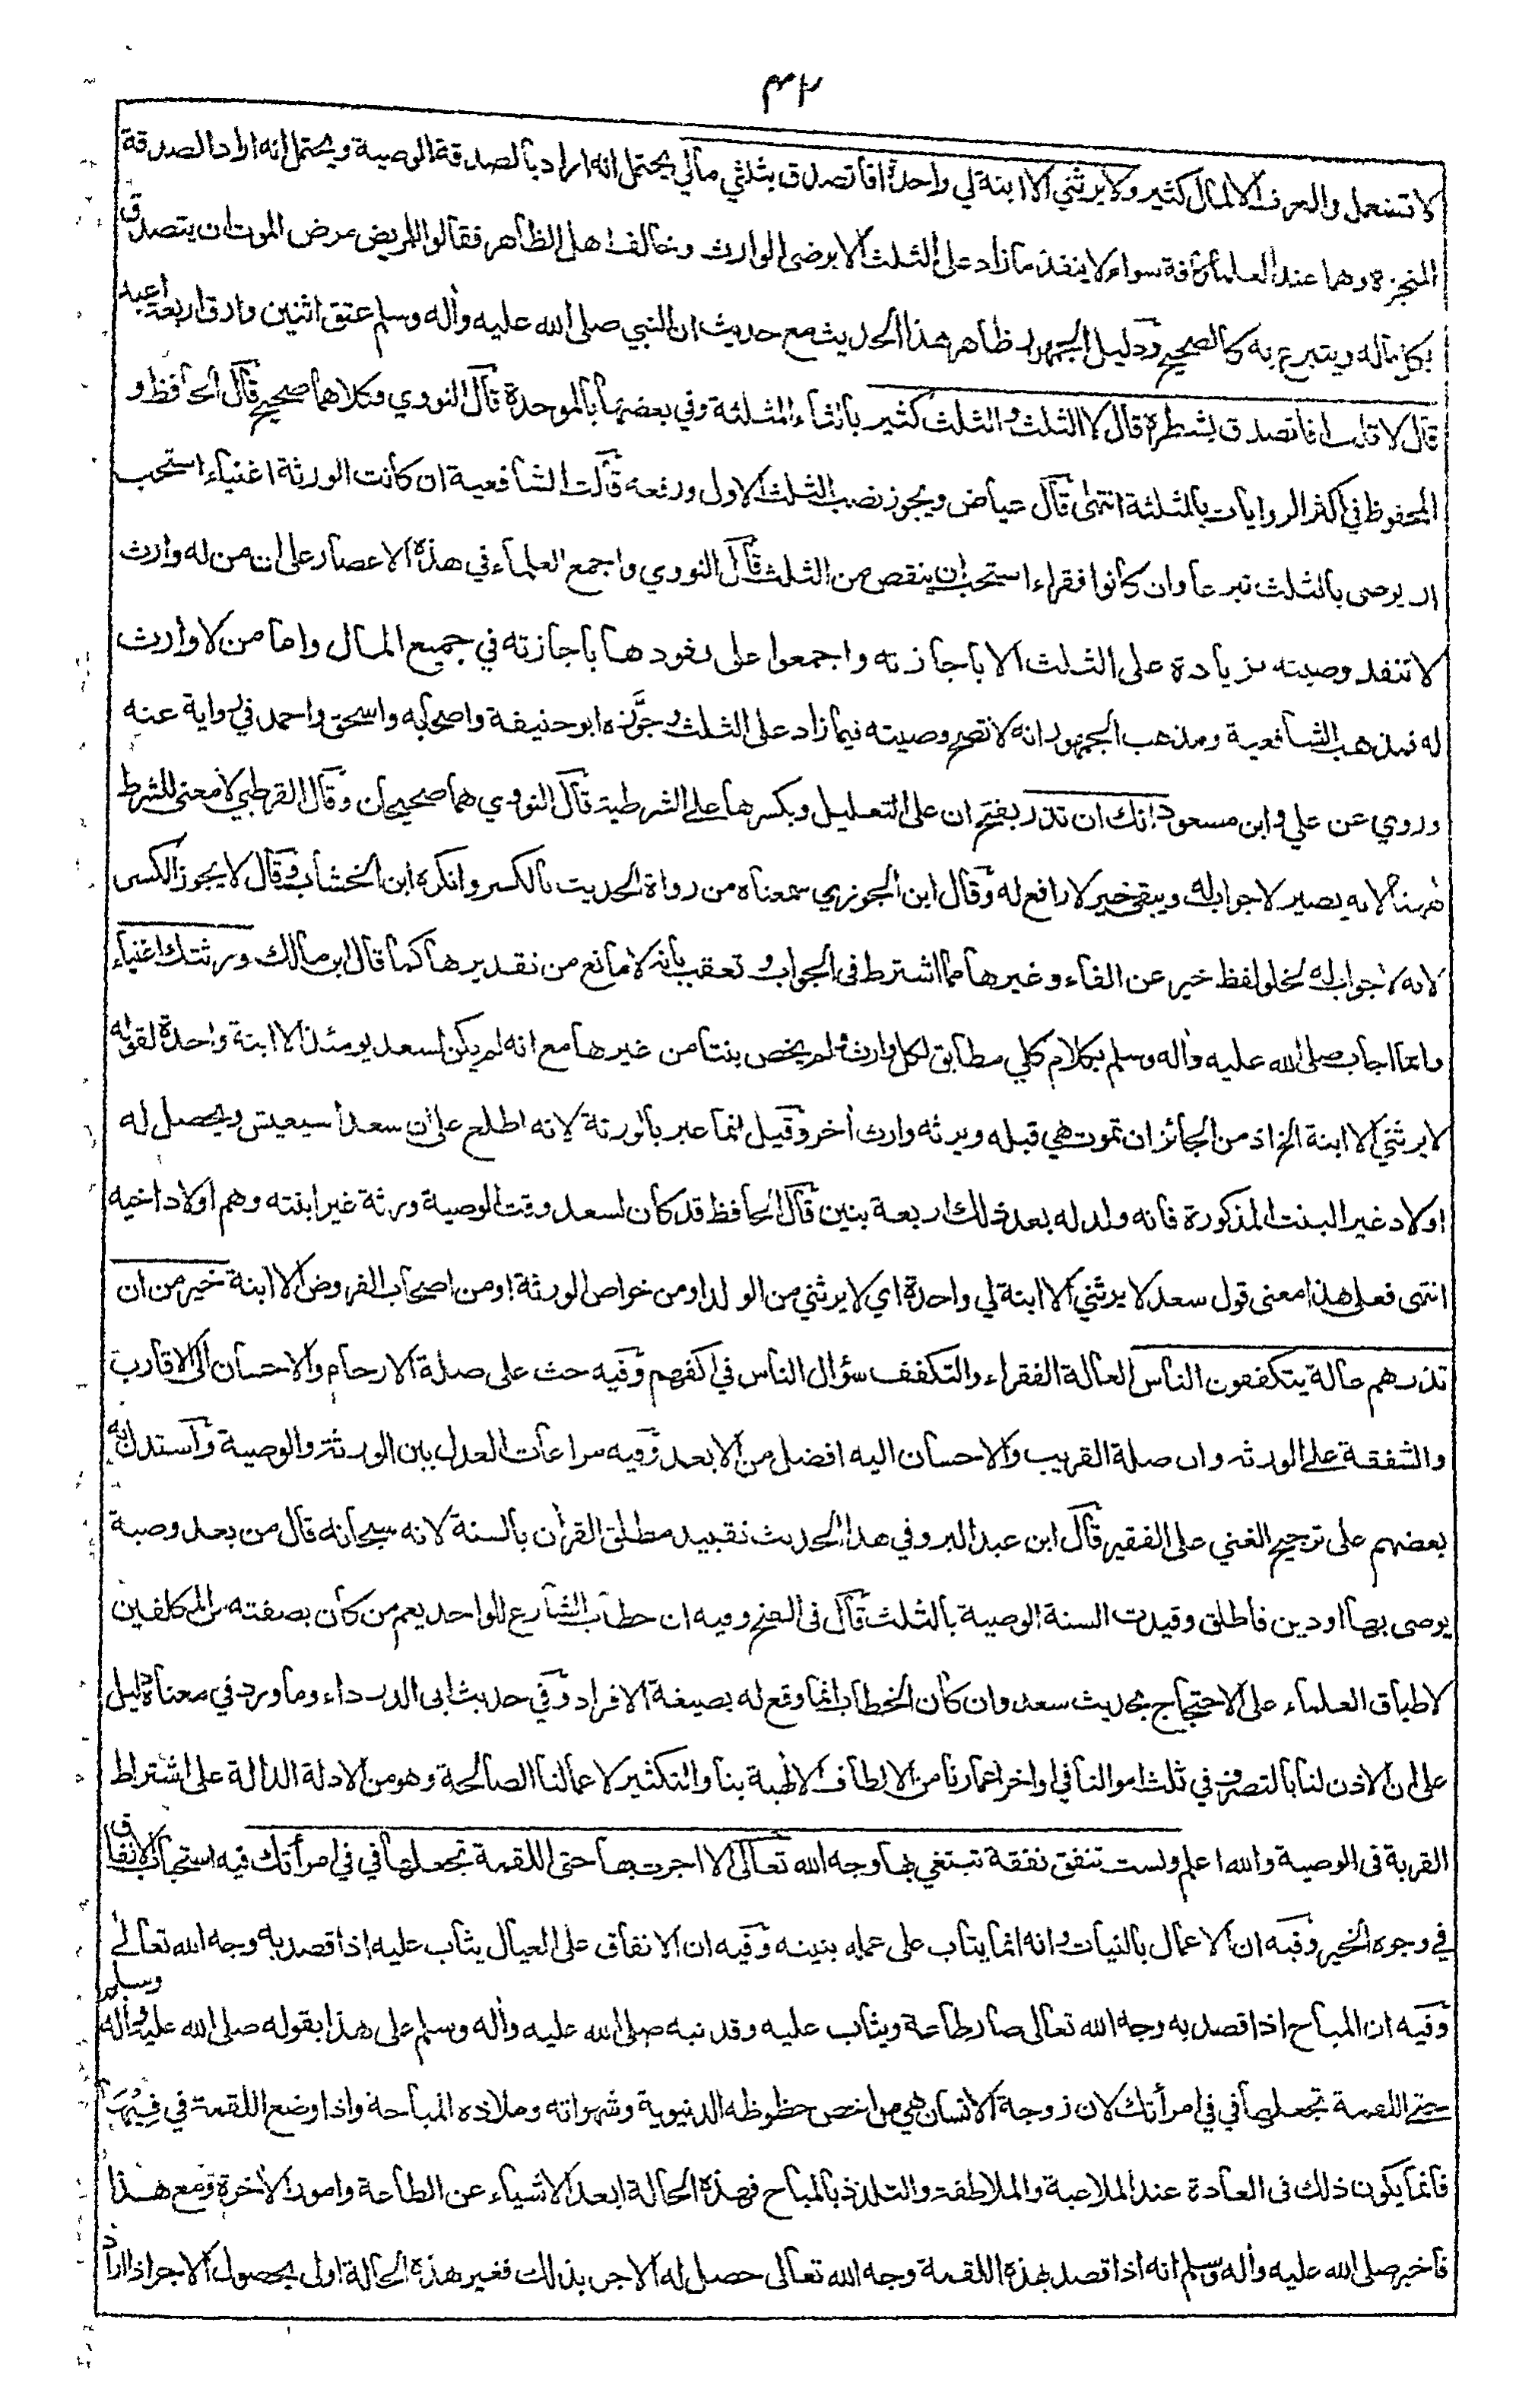 ٣٢
لا تستعمل والعرف الا لمال كثير ولا يرثني الا ابنة لي واحدة افاتصدق بثلثي مالي يحتمل انه اراد بالصدقة الوصية ويحتمل انه اراد الصدقة
المنجزة وهما عند العلماء كافة سواء لا ينفذ ما زاد على الثلث الا برضى الوارث وخالف اهل الظاهر فقالوا للمريض مرض الموت ان يتصدق
بكل ماله ويتبرع به كالصحيح ودليل الجمهور ظاهر هذا الحديث مع حديث ان النبي صلى الله عليه واٰله وسلم عتق اثنين وارق اربعة اعبد
قال لا قلت افاتصدق بشطره قال لا الثلث والثلث كثير بالثاء المثلثة وفي بعضها بالموحدة قال النووي وكلاهما صحيح قال الحافظ و
المحفوظ في اكثر الروايات بالمثلثة انتهى قال عياض ويجوز نصب الثلث الاول ورفعه قالت الشافعية ان كانت الورثة اغنياء استحب
ان يوصى بالثلث تبرعا وان كانوا فقراء استحب ان ينقص من الثلث قال النووي واجمع العلماء في هذه الاعصار على ان من له وارث
لا تنفذ وصيته بزيادة على الثلث الا باجازته واجمعوا على نفوذها باجازته في جميع المال واما من لا وارث
له فمذهب الشافعية ومذهب الجمهور انه لا تصح وصيته فيما زاد على الثلث وجوَّزه ابو حنيفة واصحابه واسحق واحمد في رواية عنه
وروي عن علي وابن مسعود انك ان تذر بفتح ان على التعليل وبكسرها على الشرطية قال النووي هما صحيحان وقال القرطبي لا معنى للشرط
ههنا لانه يصير لا جواب له ويبقى خير لا رافع له وقال ابن الجوزي سمعناه من رواة الحديث بالكسر وانكره ابن الخشاب وقال لا يجوز الكسر
لانه لا جواب له لخلو لفظ خير عن الفاء وغيرها مما اشترط في الجواب وتعقب بانه لا مانع من تقديرها كما قال ابن مالك ورثتك اغنياء
وانما اجاب صلى الله عليه واٰله وسلم بكلام كلي مطابق لكل وارث ولم يخص بنتا من غيرها مع انه لم يكن لسعد يومئذ الا ابنة واحدة لقوله
لا يرثني الا ابنة الخ اذ من الجائز ان تموت هي قبله ويرثه وارث اٰخر وقيل انما عبر بالورثة لانه اطلع على ان سعدا سيعيش ويحصل له
اولاد غير البنت المذكورة فانه ولد له بعد ذلك اربعة بنين قال الحافظ قد كان لسعد وقت الوصية ورثة غير ابنته وهم اولاد اخيه
انتهى فعلى هذا معنى قول سعد لا يرثني الا ابنة لي واحدة اي لا يرثني من الولد او من خواص الورثة او من اصحاب الفروض الا ابنة خير من ان
تذرهم عالة يتكففون الناس العالة الفقراء والتكفف سؤال الناس في اكفهم وفيه حث على صلة الارحام والاحسان الى الاقارب
والشفقة على الورثة وان صلة القريب والاحسان اليه افضل من الابعد وفيه مراعات العدل بين الورثة والوصية واستدل به
بعضهم على ترجيح الغني على الفقير قال ابن عبد البر وفي هذا الحديث تقييد مطلق القراٰن بالسنة لانه سبحانه قال من بعد وصية
يوصى بها او دين فاطلق وقيدت السنة الوصية بالثلث قال في الفتح وفيه ان خطاب الشارع للواحد يعم من كان بصفته من المكلفين
لاطباق العلماء على الاحتجاج بحديث سعد وان كان الخطاب انما وقع له بصيغة الافراد وفي حديث ابي الدرداء وما ورد في معناه دليل
على ان الاذن لنا بالتصرف في ثلث اموالنا في اواخر اعمارنا من الالطاف الالٰهية بنا والتكثير لاعمالنا الصالحة وهو من الادلة الدالة على اشتراط
القربة في الوصية والله اعلم ولست تنفق نفقة تبتغي بها وجه الله تعالى الا اجرت بها حتى اللقمة تجعلها في في امرأتك فيه استحباب الانفاق
في وجوه الخير وفيه ان الاعمال بالنيات وانه انما يثاب على عمله بنيته وفيه ان الانفاق على العيال يثاب عليه اذا قصد به وجه الله تعالى
وفيه ان المباح اذا قصد به وجه الله تعالى صار طاعة ويثاب عليه وقد نبه صلى الله عليه واٰله وسلم على هذا بقوله صلى الله عليه واٰله وسلم
حتى اللقمة تجعلها في في امرأتك لان زوجة الانسان هي من اخص حظوظه الدنيوية وشهواته وملاذه المباحة واذا وضع اللقمة في فيها
فانما يكون ذلك في العادة عند الملاعبة والملاطفة والتلذذ بالمباح فهذه الحالة ابعد الاشياء عن الطاعة وامور الاٰخرة ومع هذا
فاخبر صلى الله عليه واٰله وسلم انه اذا قصد بهذه اللقمة وجه الله تعالى حصل له الاجر بذلك فغير هذه الحالة اولى بحصول الاجر اذا اراد